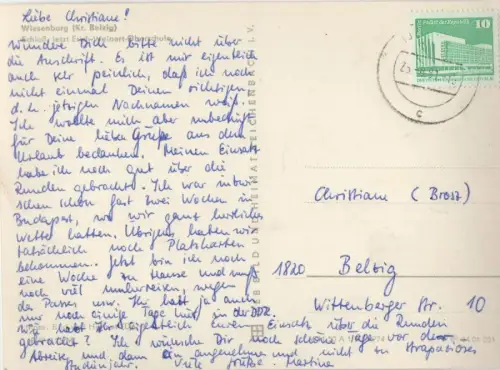 Liebe Christiane!
Wiesenburg (Kr. Belzig)
Schloß, jetzt Erich-Weinert-Oberschule
Wundre Dich bitte nicht über
die Anschrift. Es ist mir eigentlich
auch sehr peinlich, daß ich noch
nicht einmal Deinen richtigen
d. h. jetzigen Nachnamen weiß.
Ich wollte mich aber unbedingt
für Deine liebe Grüße aus dem
Urlaub bedanken. Meinen Einsatz
habe ich noch gut über die
Runden gebracht. Ich war inzwi-
schen schon fast zwei Wochen in
Budapest, wo wir ganz herrliches
Wetter hatten. Übrigens haben wir
tatsächlich noch Platzkarten
bekommen. Jetzt bin ich noch
eine Woche zu Hause und muß
noch viel wegen
des Passes usw. Ihr habt ja auch
nur noch einige Tage hier in der DDR.
Wie habt Ihr eigentlich Euren Einsatz über die Runden
gebracht? Ich wünsche Dir noch schöne Tage vor der
Abreise und dann ein angenehmes und nicht so strapaziöses
Studienjahr. Viele Grüße Martina
BILD UND HEIMAT REICHENBACH I. V.
10
Christiane (Brost)
1820 Belzig
Wittenberger Str. 10